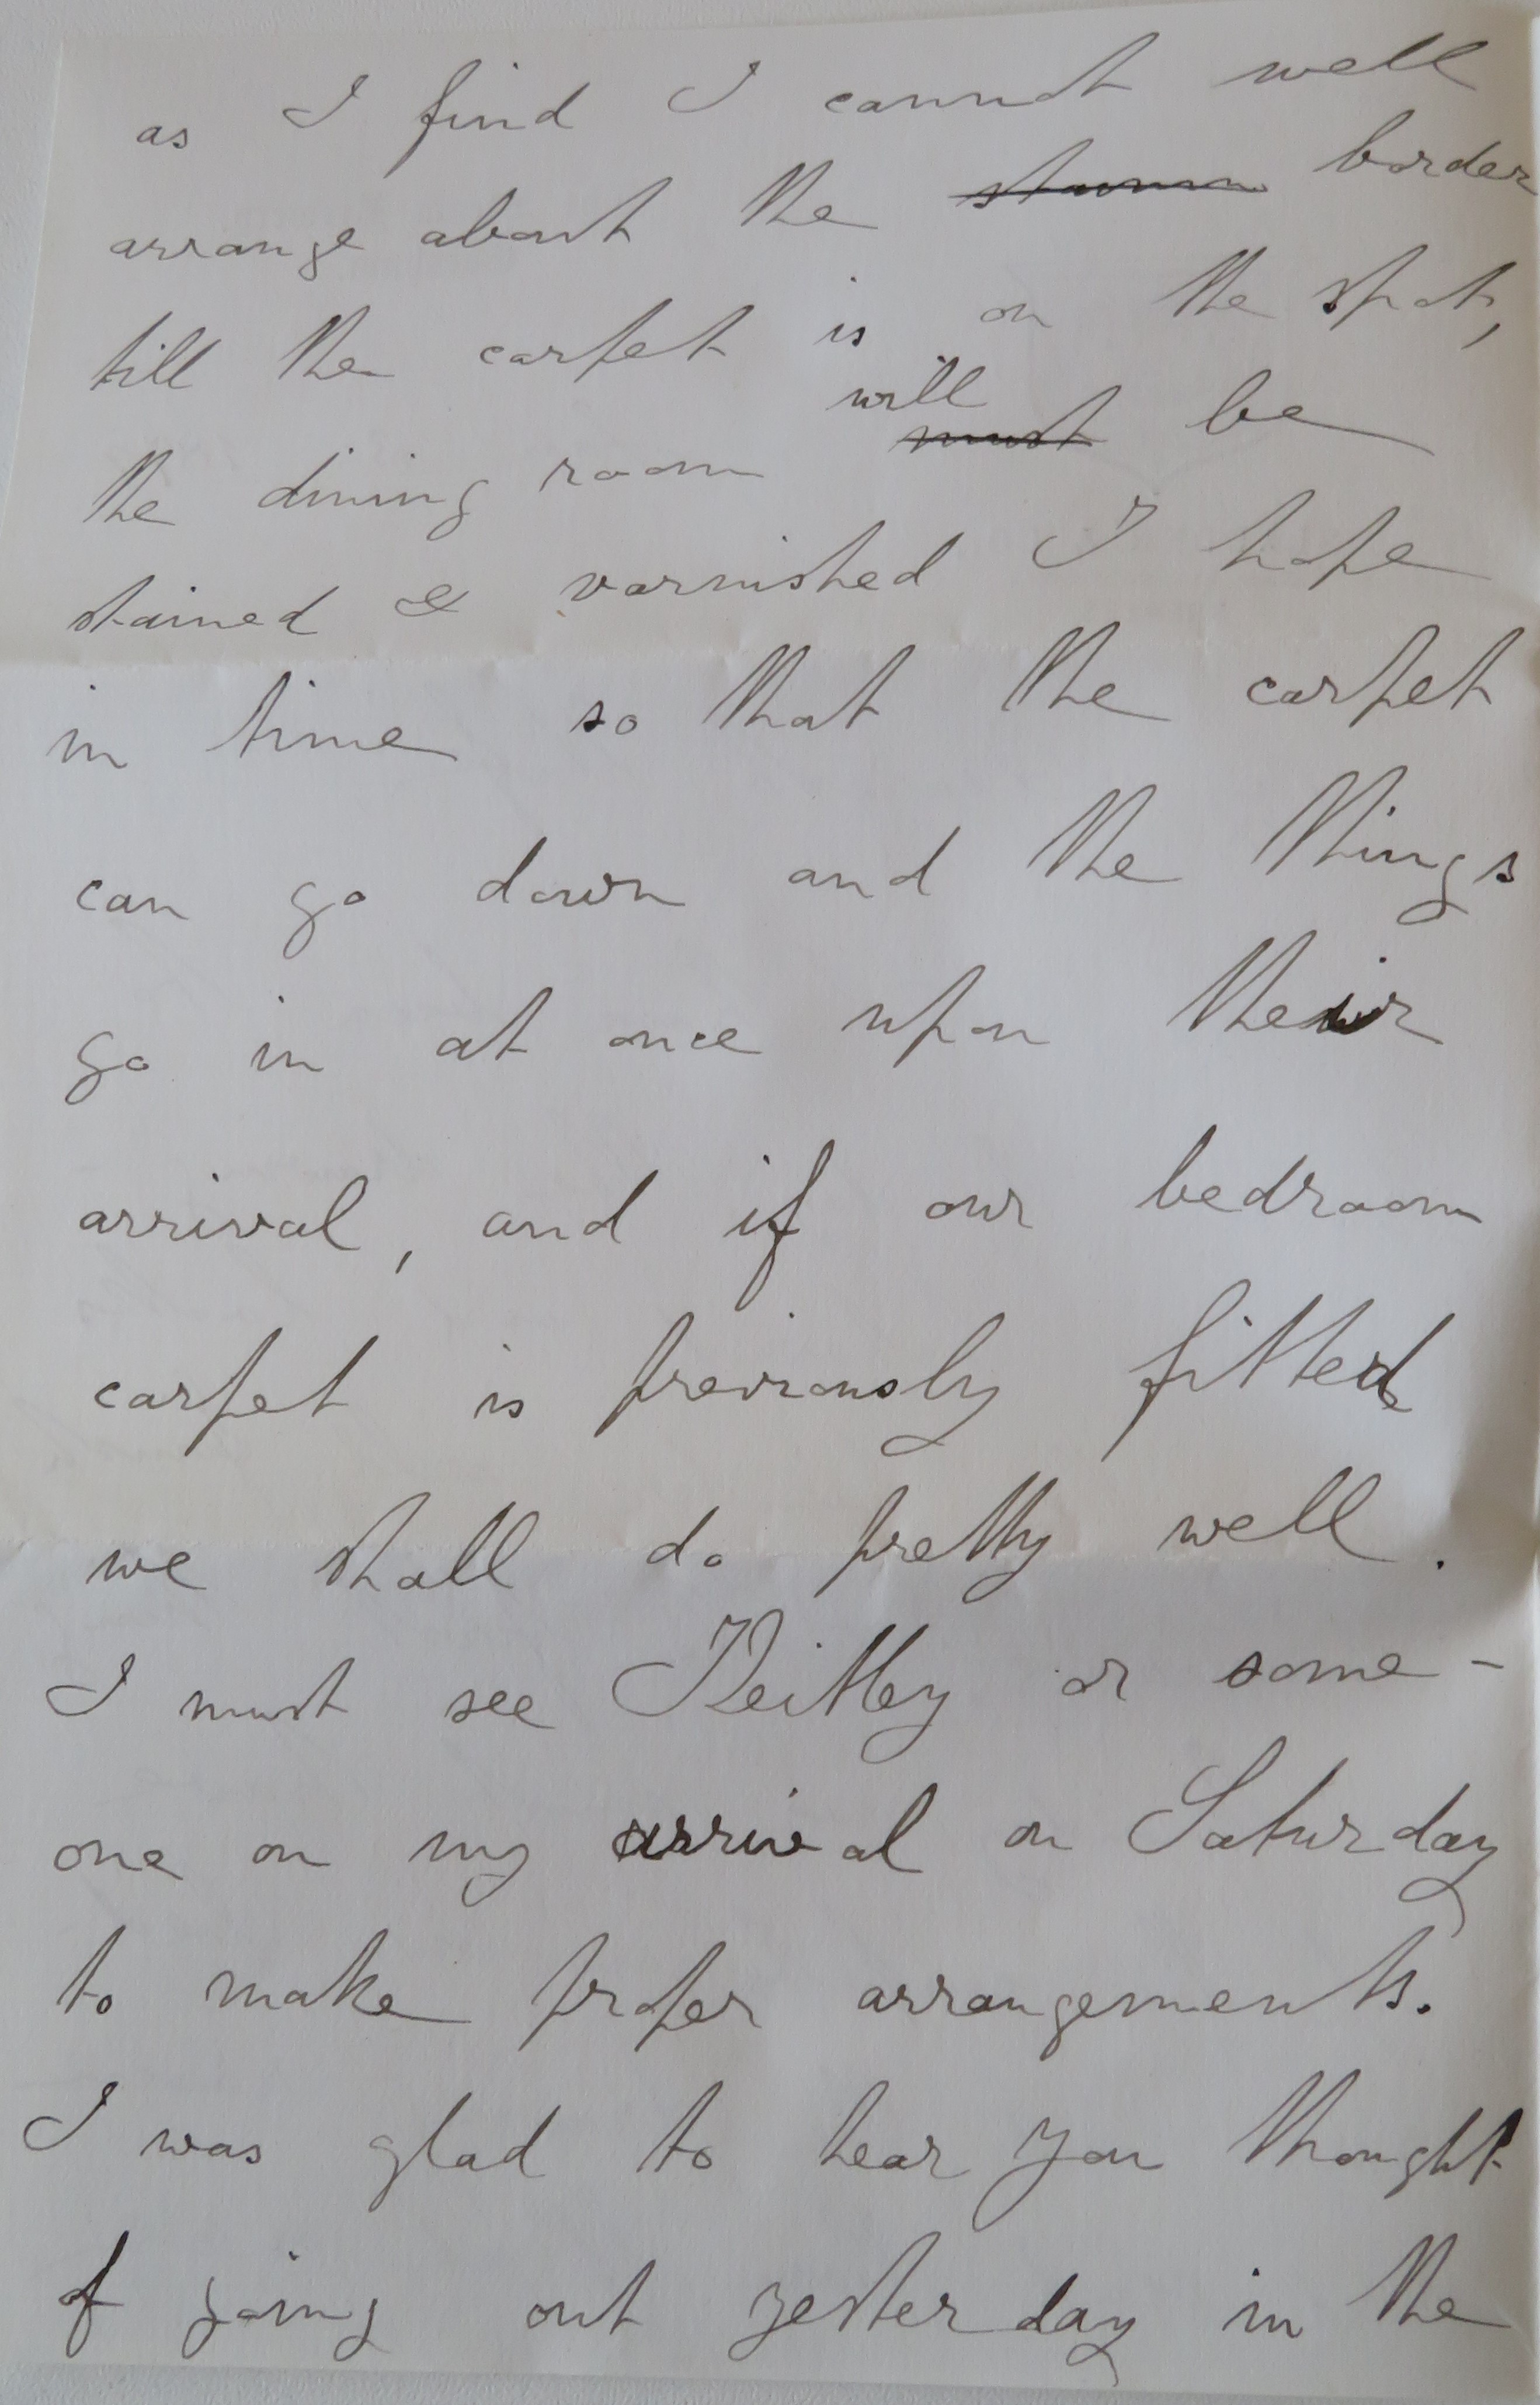 as I find I cannot well
arrange about the border
till the carpet is on the spot,
the dining room will must be
stained & varnished I hope
in time so that the carpet
can go down and the things
go in at once upon their
arrival, and if our bedroom
carpet is previously fitted
we shall do pretty well.
I must see Keithley or some-
one on my arrival on Saturday
to make proper arrangements.
I was glad to hear you thought
of going out yesterday in the